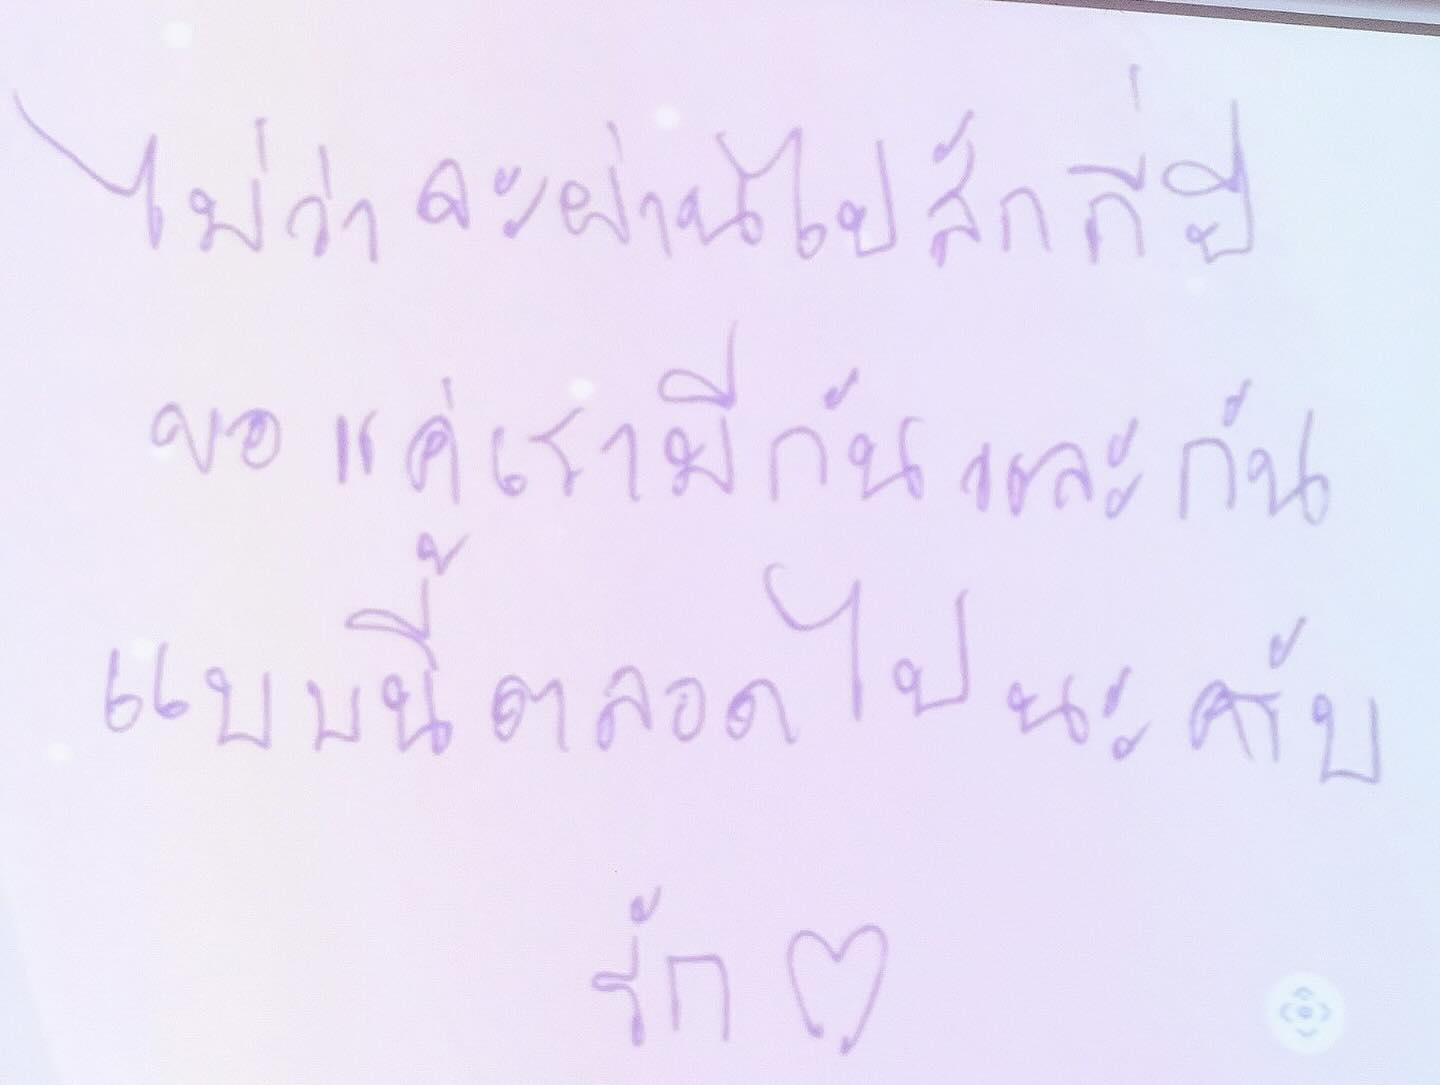 ไม่ว่าจะผ่านไปสักกี่ปี
ขอแค่เรามีกันและกัน
แบบนี้ตลอดไปนะครับ
รัก ♡